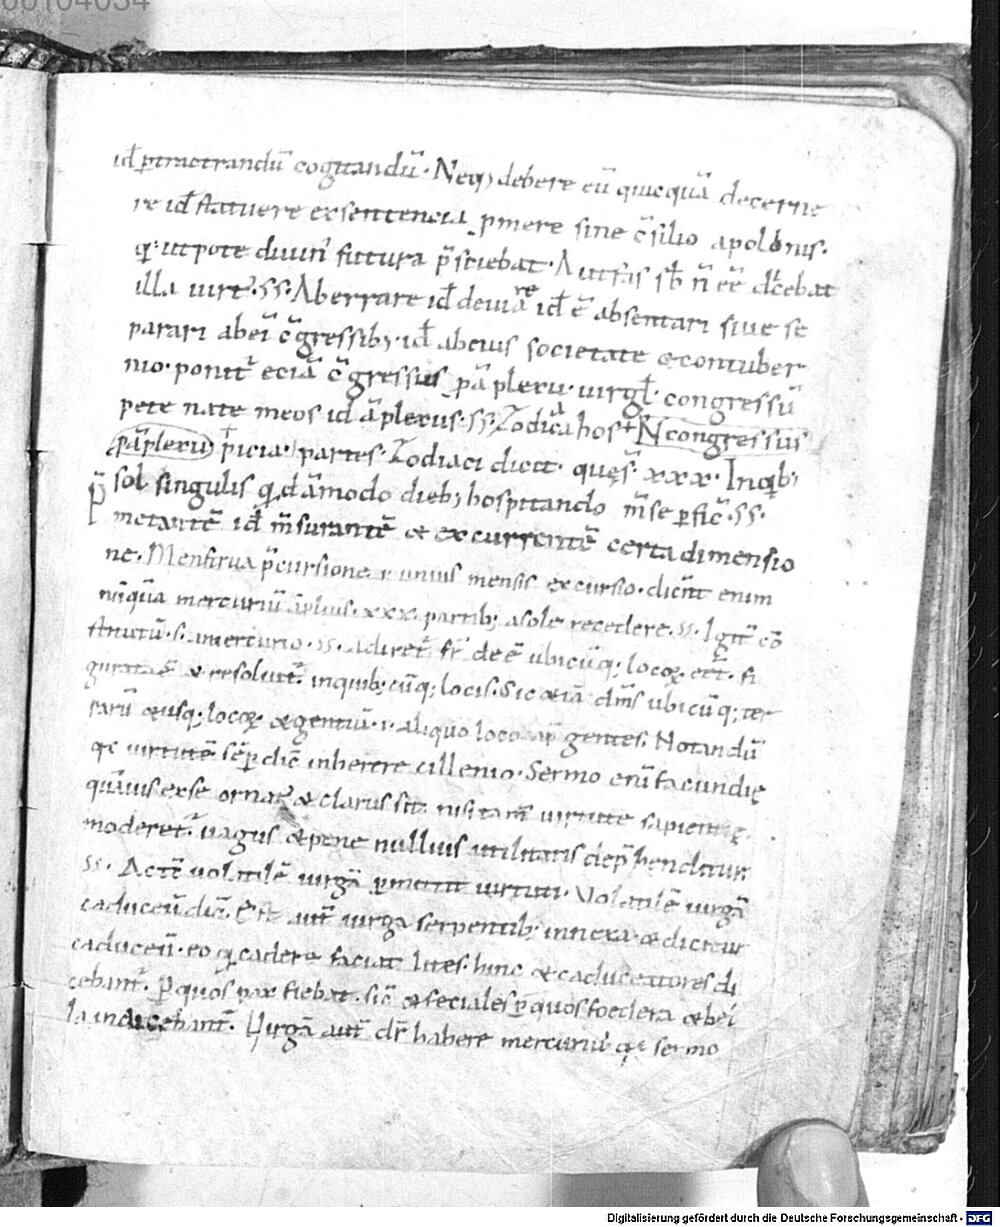 00104034
id ptractrandū cogitandū. Neq; debere eū quicquā decerne
re id statuere exsentencia pmere sine c̄silio apolonis.
q. utpote diuin' futura p̄sciebat. Aut fas sb n̄ eē dicebat
illa uirt'. SS. Aberrare id deuiare id ē absentari siue se
parari abei' c̄gressib; id abeius societate & contuber
nio. ponit' eciā c̄gressus pāplexu. uirgł. congressū
pete nate meos id āplexus. SS. Zodiaca hos N congressus
pāplexu p̄icia. partes Zodiaci dicit quęs. xxx. In qib;
sol singulis qdāmodo dieb; hospitando m̄se pfic'. SS.
metantē id m̄surantē & excurrentē certa dimensio
ne. Menstrua p̄cursione .i. unius mensis excursio. dicn̄t enim
nūquā mercuriū āplius .xxx. partib; a sole recedere. SS. Igit' cō
stitutū .s. a mercurio. SS. Adiret' fr̄ deē ubicūq; locoꝝ eēt. fi
guratē & resoluit'. inquib; cūq; locis. Sic & iā dm̄s ubicūq; ter
rarū & usq; locoꝝ & gentiū .i. aliquo loco ap gentes. Notandū
qe uirtutē sēp dic̄ inherere cillenio. Sermo eni facundię
quāuis exse ornat' & clarus sit nisi tam̄ uirtute sapientię
moderet' uagus & pene nullius utilitatis dep̄henditur
SS. Ac tē uolatilē uirgā pmittit uirtuti. Uolatilē uirgā
caduceū dic̄. Est aut̄ uirga serpentib; innexa & dicitur
caduceū. eo qd cadere faciat lites. hinc & caduceatores di
cebant'. p quos pax fiebat. sic & feciales p quos foedera & bel
la indicebant'. Uirgā aut̄ dr̄ habere mercuriu' qe sermo
Digitalisierung gefördert durch die Deutsche Forschungsgemeinschaft - DFG